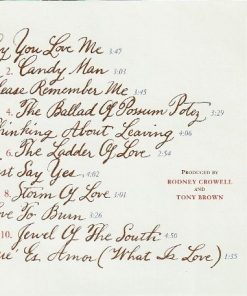 y You Love Me 3:47
2. Candy Man 3:03
lease Remember Me 3:45
4. The Ballad Of Possum Potez 3:29
hinking About Leaving 4:06
6. The Ladder Of Love 2:54
st Say Yes 4:02
8. Storm Of Love 3:01
ve To Burn 3:26
10. Jewel Of The South 4:50
ue Es Amor (What Is Love) 3:35
PRODUCED BY
RODNEY CROWELL
AND
TONY BROWN